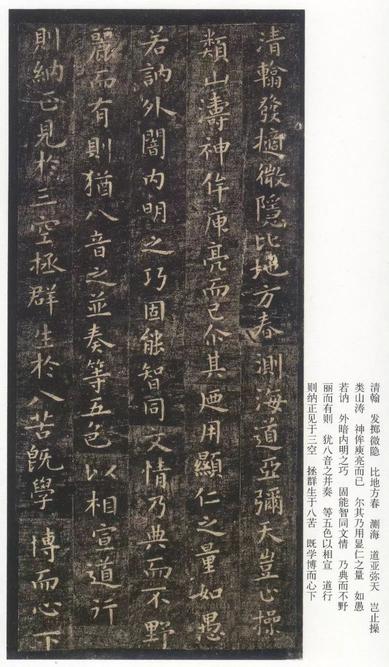 清翰發擿微隱比地方春測海道亞彌天豈止操
類山濤神侔庾亮而已尒其廼用顯仁之量如愚
若訥外闇内明之巧固能智同文情乃典而不野
麗而有則猶八音之並奏等五色以相宣道行
則納正見於三空拯群生於八苦既學博而心下
清翰　发掷微隐　比地方春　测海　道亚弥天　岂止操
类山涛　神侔庾亮而已　尔其乃用显仁之量　如愚
若讷　外暗内明之巧　固能智同文情　乃典而不野
丽而有则　犹八音之并奏　等五色以相宣　道行
则纳正见于三空　拯群生于八苦　既学博而心下